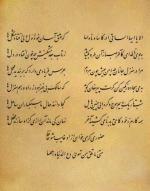 الا یا ایها الساقی ادر کاسا و ناولها که عشق آسان نمود اول ولی افتاد مشکلها
ببوی نافه کاخر صبا زان طره بگشاید ز تاب جعد مشکینش چه خون افتاد در دلها
مرا در منزل جانان چه امن عیش چون هر دم جرس فریاد میدارد که بربندید محملها
شب تاریک و بیم موج و گردابی چنین هایل کجا دانند حال ما سبکباران ساحلها
همه کارم ز خود کامی به بدنامی کشید آخر نهان کی ماند آن رازی کزو سازند محفلها
حضوری گر همی خواهی ازو غایب مشو حافظ
متی ما تلق من تهوی دع الدنیا و اهملها